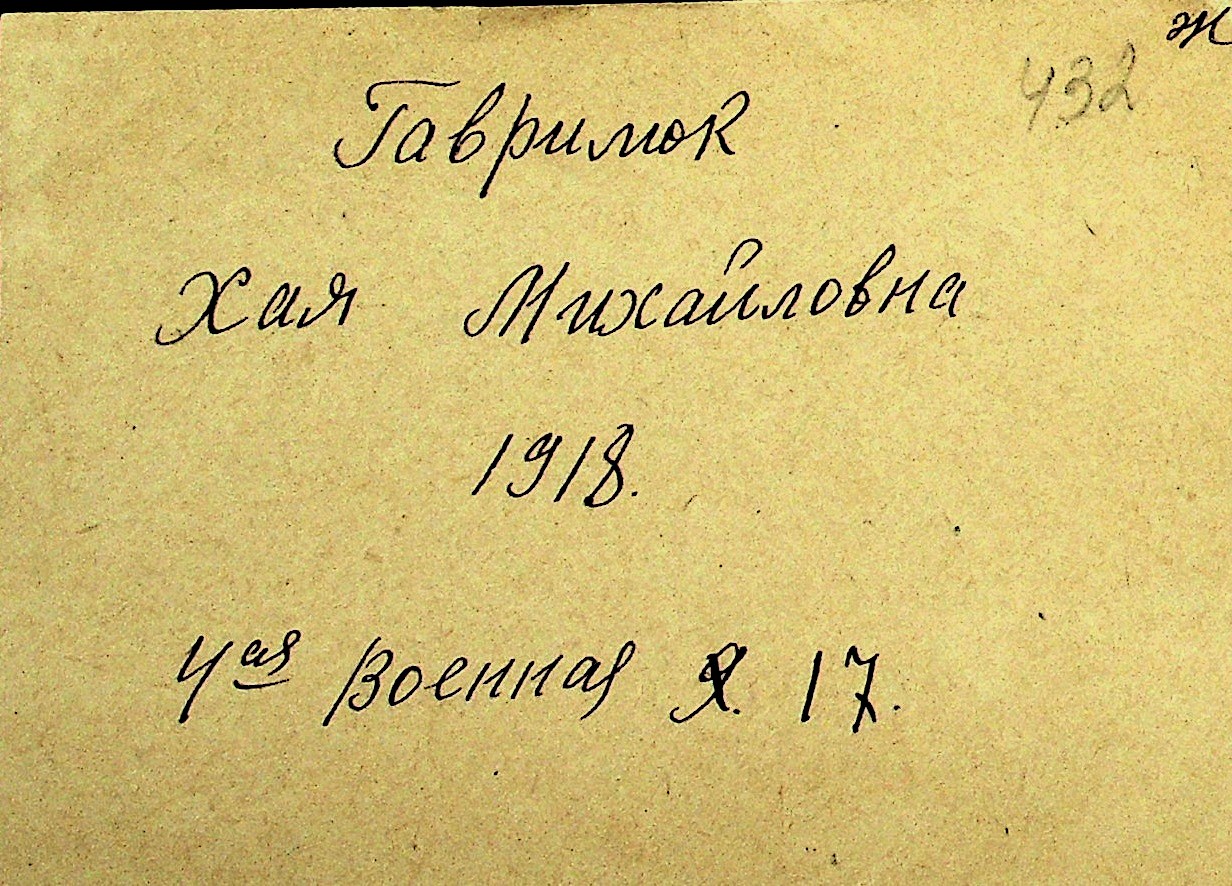 ж
432
Гаврилюк
Хая Михайловна
1918.
4ая Военная д. 17.